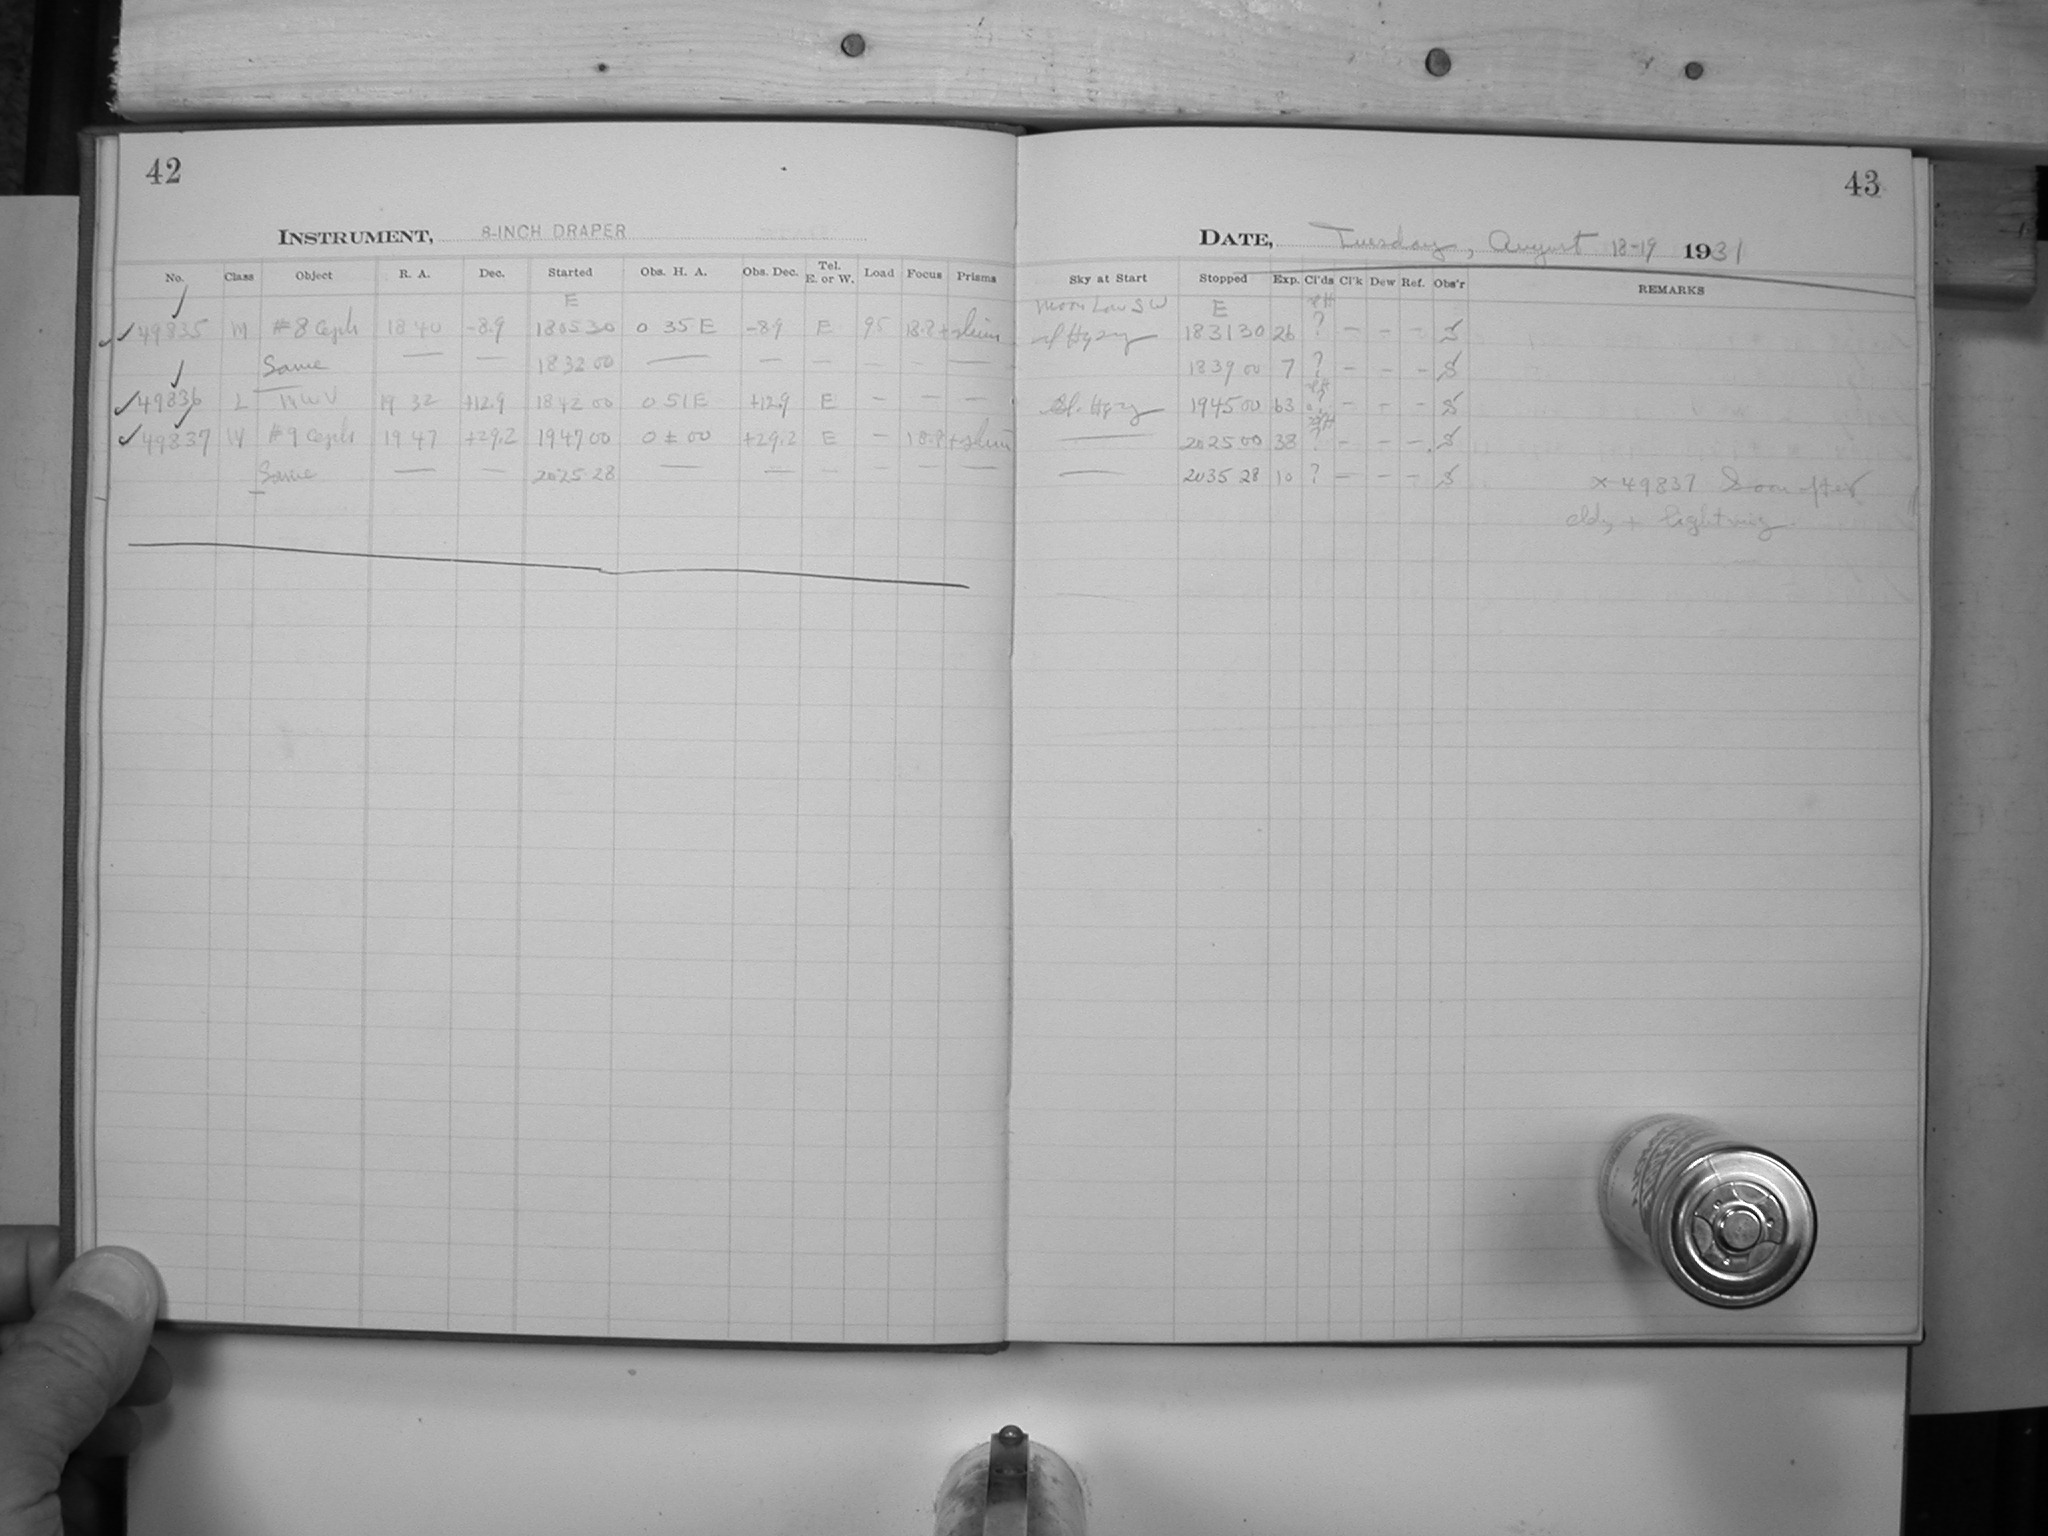 42
43
INSTRUMENT, 8-INCH DRAPER
DATE, Tuesday, August 18-19 1931
No. Class Object R. A. Dec. Started Obs. H. A. Obs. Dec. Tel. E. or W. Load Focus Prisms
Sky at Start Stopped Exp. Cl'ds Cl'k Dew Ref. Obs'r REMARKS
E
Moon Low SW E
49835 M #8 Ceph 18 40 -8.9 18 05 30 0 35 E -8.9 E 95 18.8
18 31 30 26 ? — – –
Same — — 18 32 00 — — — — – —
18 39 00 7 ? – – –
49836 L 19 32 +12.9 18 42 00 0 51 E +12.9 E – – –
19 45 00 63 – – –
49837 #9 Ceph 19 47 +29.2 19 47 00 0 ± 00 +29.2 E – 18.8
— 20 25 00 38 ? – – –
Same — — 20 25 28 — — — — – —
— 20 35 28 10 ? – – –
x 49837 Soon after
cldy + lightning